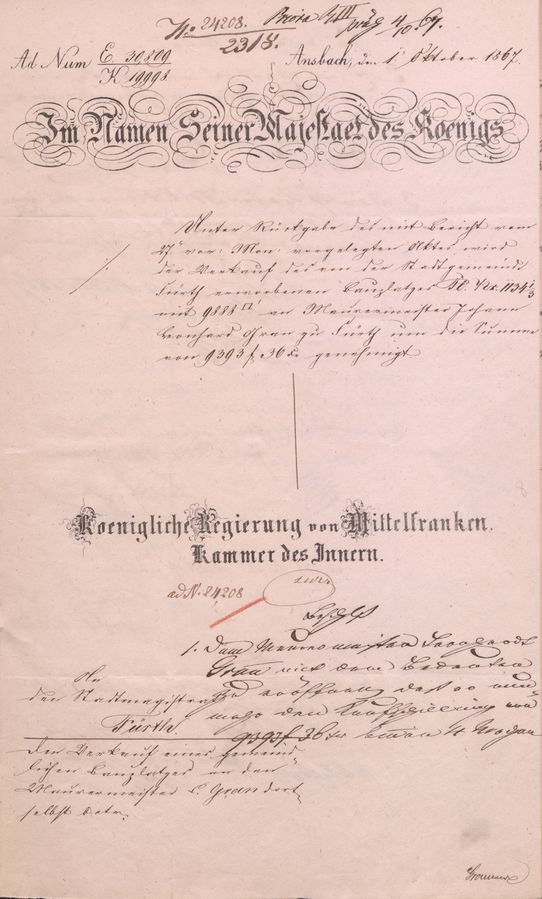 No. 24208.
2318.
Ad Num E. 30,809
K 19998
Ansbach, den 1. Oktober 1867.
Im Namen Seiner Majestaet des Koenigs
Unter Rückgabe des mit Bericht vom
27. vor. Mon. vorgelegten Aktes wird
der Verkauf des von der Stadtgemeinde
Fürth erworbenen Bauplatzes Pl. Nr. 1134 1/3
mit 9888 □' an Maurermeister Johann
Leonhard Gran zu Fürth um die Summe
von 9393 f. 36 kr. genehmigt.
Koenigliche Regierung von Mittelfranken,
Kammer des Innern.
ad N. 24208
Beschluß
1. Dem Maurermeister Leonhardt
Gran mit dem Bedeuten
zu eröffnen, daß er nun
den Kaufschilling von
9393 f 36 kr binnen 4 Wochen
An
den Stadtmagistrat
Fürth.
Den Verkauf eines gemeind-
lichen Bauplatzes an den
Maurermeister L. Gran dort-
selbst betr.